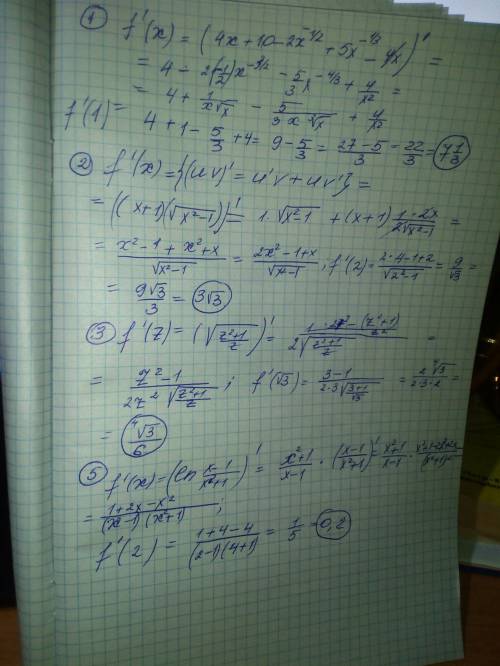 ① f'(x) = (4x + 10 - 2x^{-1/2} + 5x^{-1/3} - 4/x)' =
= 4 - 2(-1/2)x^{-3/2} - 5/3 x^{-4/3} + 4/x² =
= 4 + 1/(x√x) - 5/(3x ∛x) + 4/x²
f'(1) = 4 + 1 - 5/3 + 4 = 9 - 5/3 = (27-5)/3 = 22/3 = 7 1/3
② f'(x) = {(uv)' = u'v + uv'} =
= ((x+1)(√(x²-1)))' = 1·√(x²-1) + (x+1) (1·2x)/(2√(x²-1)) =
= (x²-1+x²+x)/√(x²-1) = (2x²-1+x)/√(x²-1), f'(2) = (2·4-1+2)/√(2²-1) = 9/√3 =
= 9√3/3 = 3√3
③ f'(z) = (√((z²+1)/z))' = (1·2z² - (z²+1))/z² / 2√((z²+1)/z) =
= (z²-1)/(2z² √((z²+1)/z)); f'(√3) = (3-1)/(2·3√((3+1)/√3)) = 2 ⁴√3/(2·3·2) =
= ⁴√3/6
⑤ f'(x) = (ln (x-1)/(x²+1))' = (x²+1)/(x-1) · ((x-1)/(x²+1))' = (x²+1)/(x-1) ·
= (1+2x-x²)/((x-1)(x²+1));
f'(2) = (1+4-4)/((2-1)(4+1)) = 1/5 = 0,2